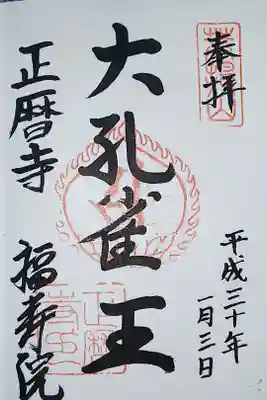 奉拝
平成三十年
一月三日
大孔雀王
正暦寺 福寿院